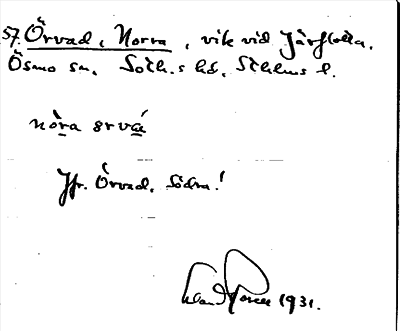 57. Örvad, Norra, vik vid Järflotta.
Ösmo sn. Soth.s hd. Sthlms l.
nòra ɛrvá
Jfr. Örvad, Södra!
1931.